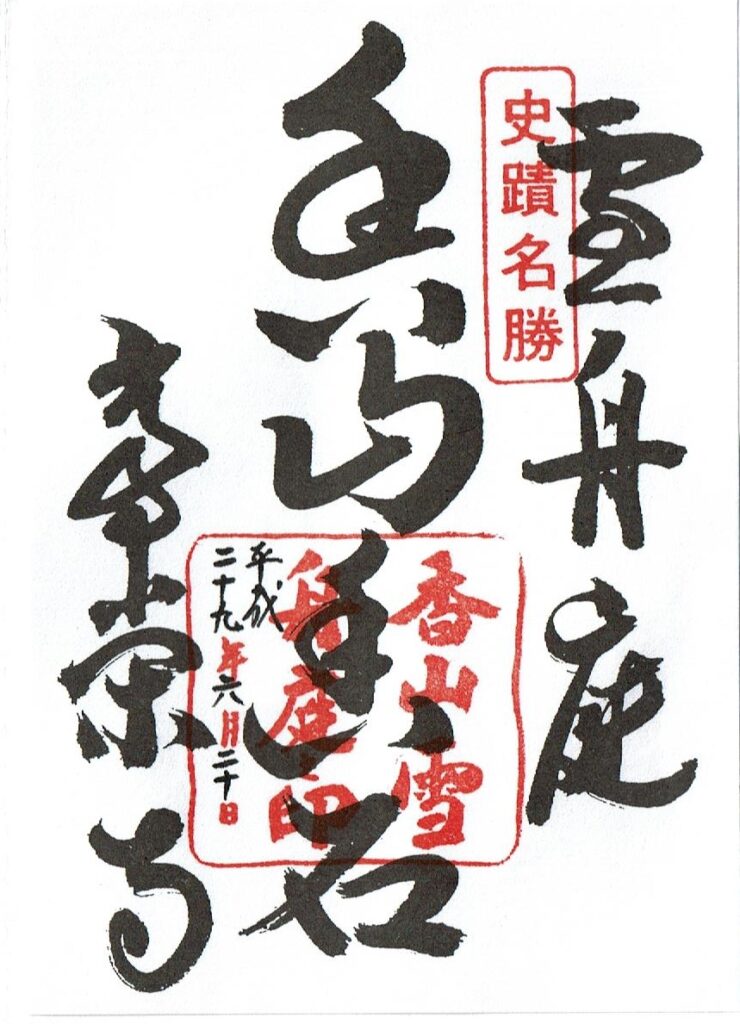 史蹟名勝
雪舟庭
山 石
香山雪
舟庭之印
平成
二十九年六月二十日
常栄寺